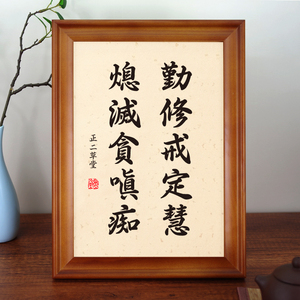 勤修戒定慧
熄滅貪嗔痴
正二草堂